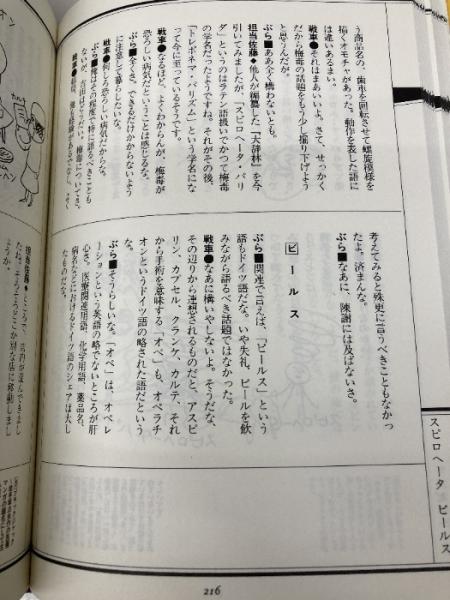 う商品名の、歯車を回転させて螺旋模様を
描くオモチャがあった。動作を表した語に
は違いあるまい。
戦車●それはまあいいよ。さて、せっかく
だから梅毒の話題をもう少し掘り下げよう
と思うんだが。
ぶら■ああ全く構わないとも。
担当佐藤◆他人が編纂した『大辞林』を今
引いてみましたが、「スピロヘータ・パリ
ダ」というのはラテン語扱いでかつて梅毒
の学名だったようですね。それがその後、
「トレポネマ・パリズム」という学名にな
って今に至っているようです。
戦車●なるほど。よくわからんが、梅毒が
恐ろしい病気だということは感じるな。
ぶら■全くさ。できるだけかからないよう
に注意して暮らしたいな。
戦車●何しろ恐ろしい病気だからな。
ぶら■俺はその程度で特に語るべきことも
考えてみると殊更に言うべきこともなかっ
たよ。済まんな。
ぶら■なあに、陳謝には及ばないさ。
ビールス
ぶら■関連で言えば、「ビールス」という
語もドイツ語だな。いや失礼、ビールを飲
みながら語るべき話題ではなかった。
戦車●なあに構いやしないよ。そうだな、
その辺りから連想されるものだと、アスピ
リン、カプセル、クランケ、カルテ、それ
から手術を意味する「オペ」も、オペラチ
オンというドイツ語の略された語だという
な。
ぶら■そうらしいな。「オペ」は、オペレ
ーションという英語の略でないところが肝
心さ。医療関連用語、化学用語、薬品名、
病名などにおけるドイツ語のシェアは大し
たものだな。
担当佐藤◆ところで、店内が混んできまし
たね。そろそろどこか別な店に移動しまし
ょうか。
スピロヘータ ビールス
216